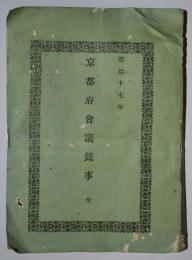 明治十七年
京都府會議錄事 全